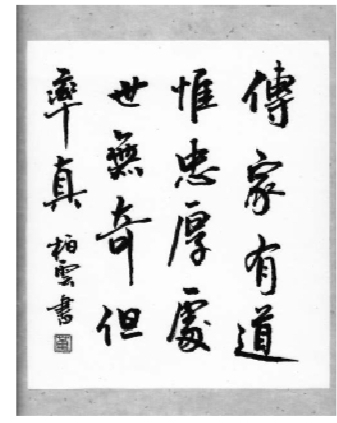 傳家有道
惟忠厚處
世無奇但
率真 柏雲書